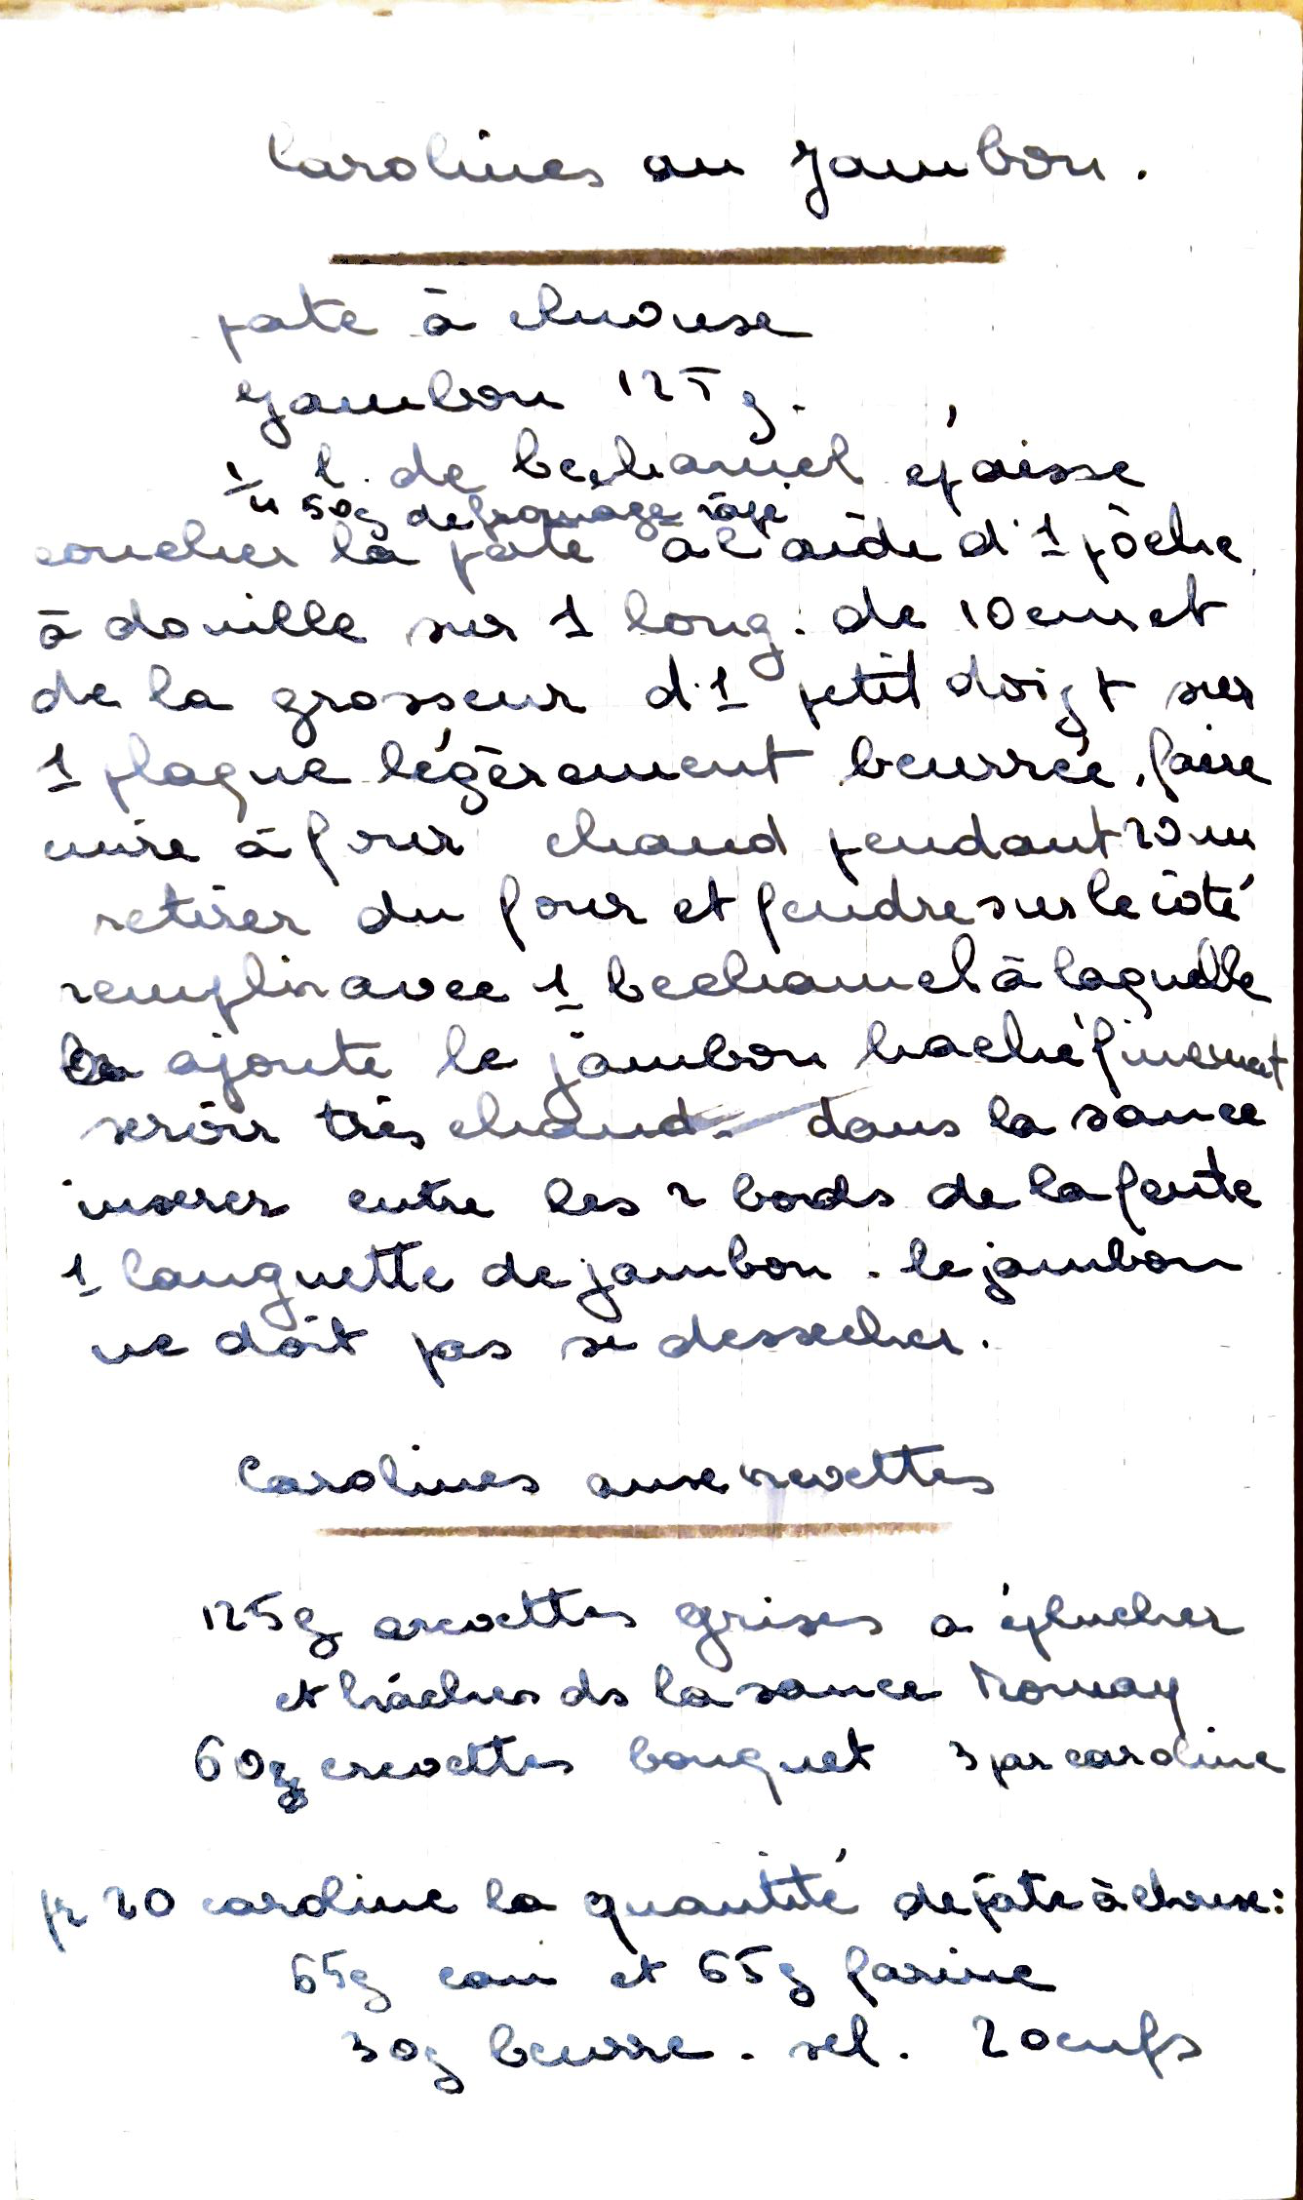 Carolines au Jambon.
pate à chouse
Jambon 125 g.
1/4 l. de bechamel épaisse
50g de fromage râpé
coucher la pate à l'aide d'1 pôche
à douille sur 1 long. de 10cm et
de la grosseur d'1 petit doigt sur
1 plaque légèrement beurrée. faire
cuire à four chaud pendant 20 m
retirer du four et fendre sur le côté
remplir avec 1 bechamel à laquelle
on ajoute le jambon haché finement
servir très chaud. dans la sauce
inserer entre les 2 bords de la fente
1 languette de jambon. le jambon
ne doit pas se dessecher.
Carolines aux crevettes
125g crevettes grises a éplucher
et hâcher ds la sauce Mornay
60g crevettes bouquet 3 par caroline
pr 20 caroline la quantité de pate à choux:
65g eau et 65g farine
30g beurre. sel. 2 oeufs